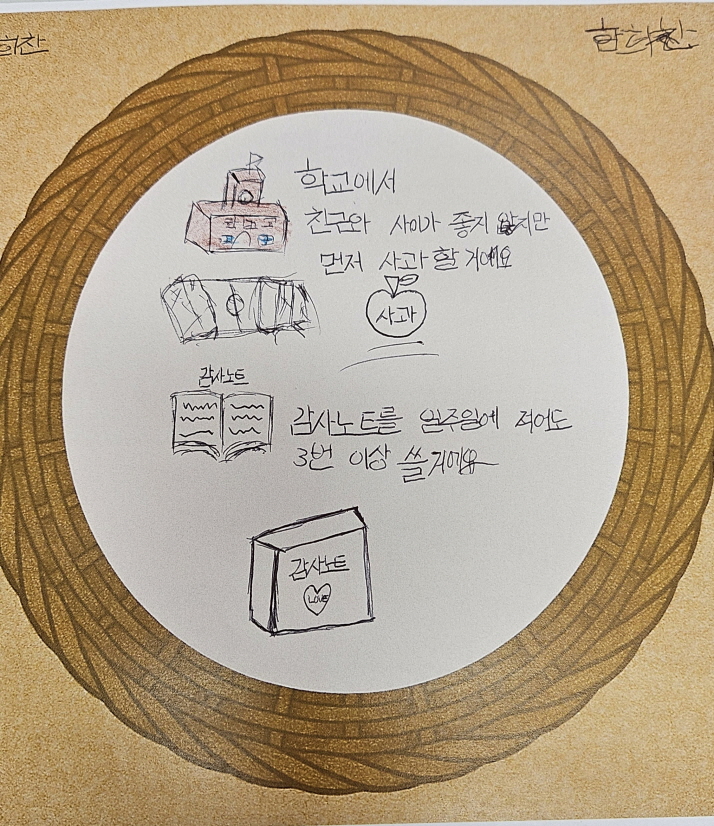 희찬
학교에서
친구와 사이가 좋지 않지만
먼저 사과 할 거예요
사과
감사노트
감사노트를 일주일에 적어도
3번 이상 쓸거에요
감사노트
LOVE